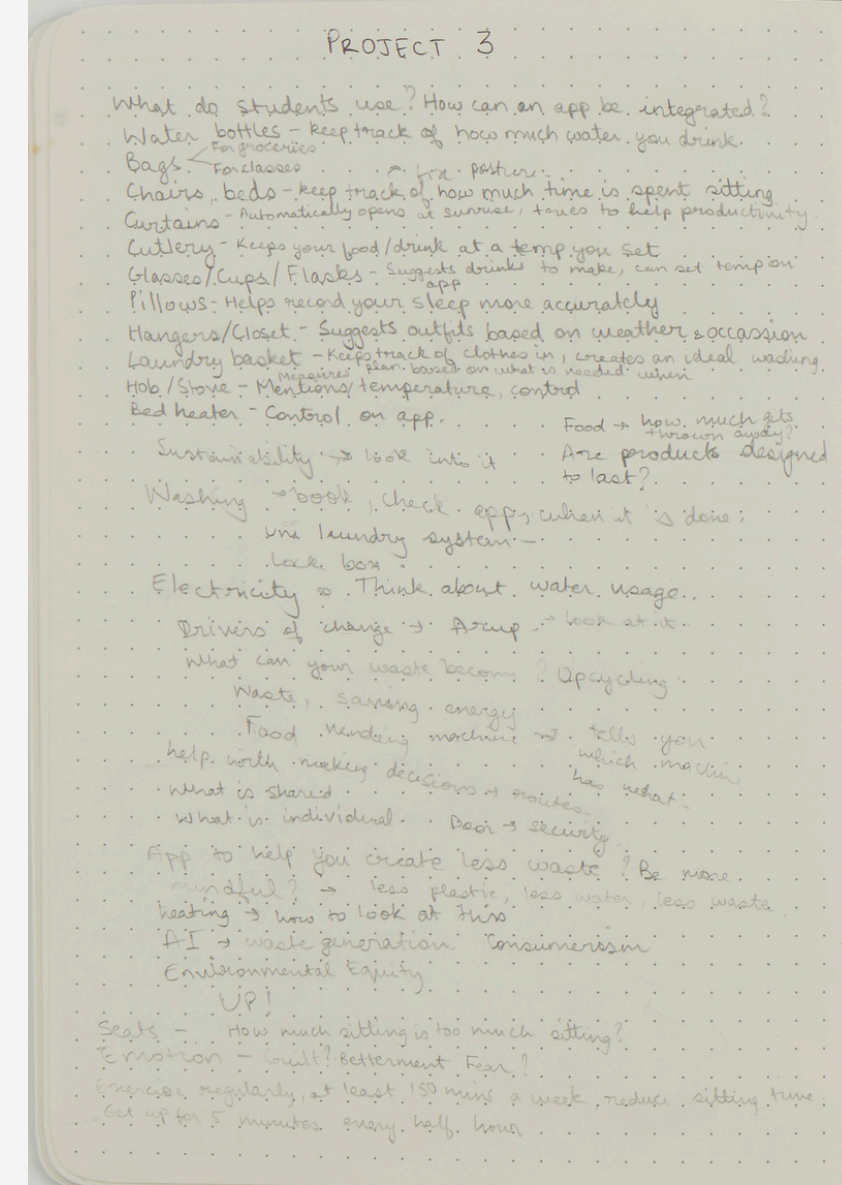 PROJECT 3
What do students use? How can an app be integrated?
Water bottles - keep track of how much water you drink.
For groceries
Bags
For classes
fix posture
Chairs, beds - keep track of how much time is spent sitting
Curtains - Automatically opens at sunrise, to help productivity
Cutlery - Keeps your food/drink at a temp you set
Glasses/Cups/Flasks - Suggests drinks to make, can set temp on
app
Pillows - Helps record your sleep more accurately
Hangers/Closet - Suggests outfits based on weather & occassion
Laundry basket - Keeps track of clothes in, creates an ideal washing
plan based on what is needed when
Measures
Hob/Stove - Mentions temperature, control
Bed heater - Control on app.
Food → how much gets
thrown away?
Sustainability → look into it
Are products designed
to last?
Washing → book, check app, when it is done:
laundry system -
Lock box
Electricity Think about water usage..
Drivers of change → Arup → look at it
What can your waste become? Upcycling
Waste, saving energy
Food vending machine → tells you
which machine
has what -
help with making decisions → routes
What is shared
What is individual. Door → security
App to help you create less waste? Be more
mindful? → less plastic, less water, less waste
heating → how to look at this
AI → waste generation. Consumerism
Environmental Equity
UP!
Seats - How much sitting is too much sitting?
Emotion - Guilt? Betterment Fear?
Exercise regularly, at least 150 mins a week, reduce sitting time.
Get up for 5 minutes every half hour